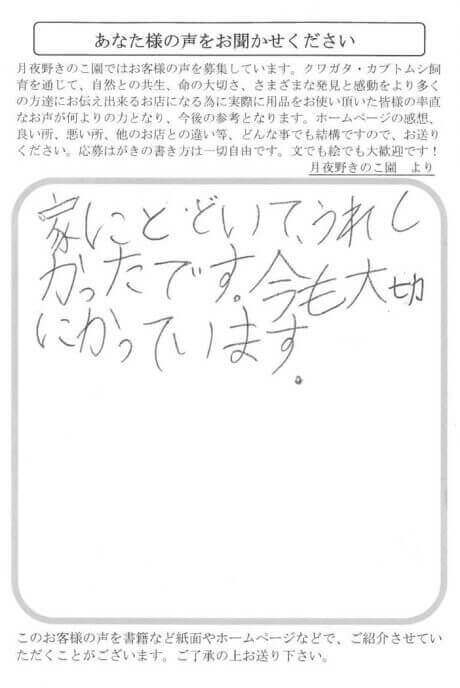 あなた様の声をお聞かせください
月夜野きのこ園ではお客様の声を募集しています。クワガタ・カブトムシ飼
育を通じて、自然との共生、命の大切さ、さまざまな発見と感動をより多く
の方達にお伝え出来るお店になる為に実際に用品をお使い頂いた皆様の率直
なお声が何よりの力となり、今後の参考となります。ホームページの感想、
良い所、悪い所、他のお店との違い等、どんな事でも結構ですので、お送り
ください。応募はがきの書き方は一切自由です。文でも絵でも大歓迎です！
月夜野きのこ園　より
家にとどいて、うれし
かったです。今も大切
にかっています。
このお客様の声を書籍など紙面やホームページなどで、ご紹介させてい
ただくことがございます。ご了承の上お送り下さい。